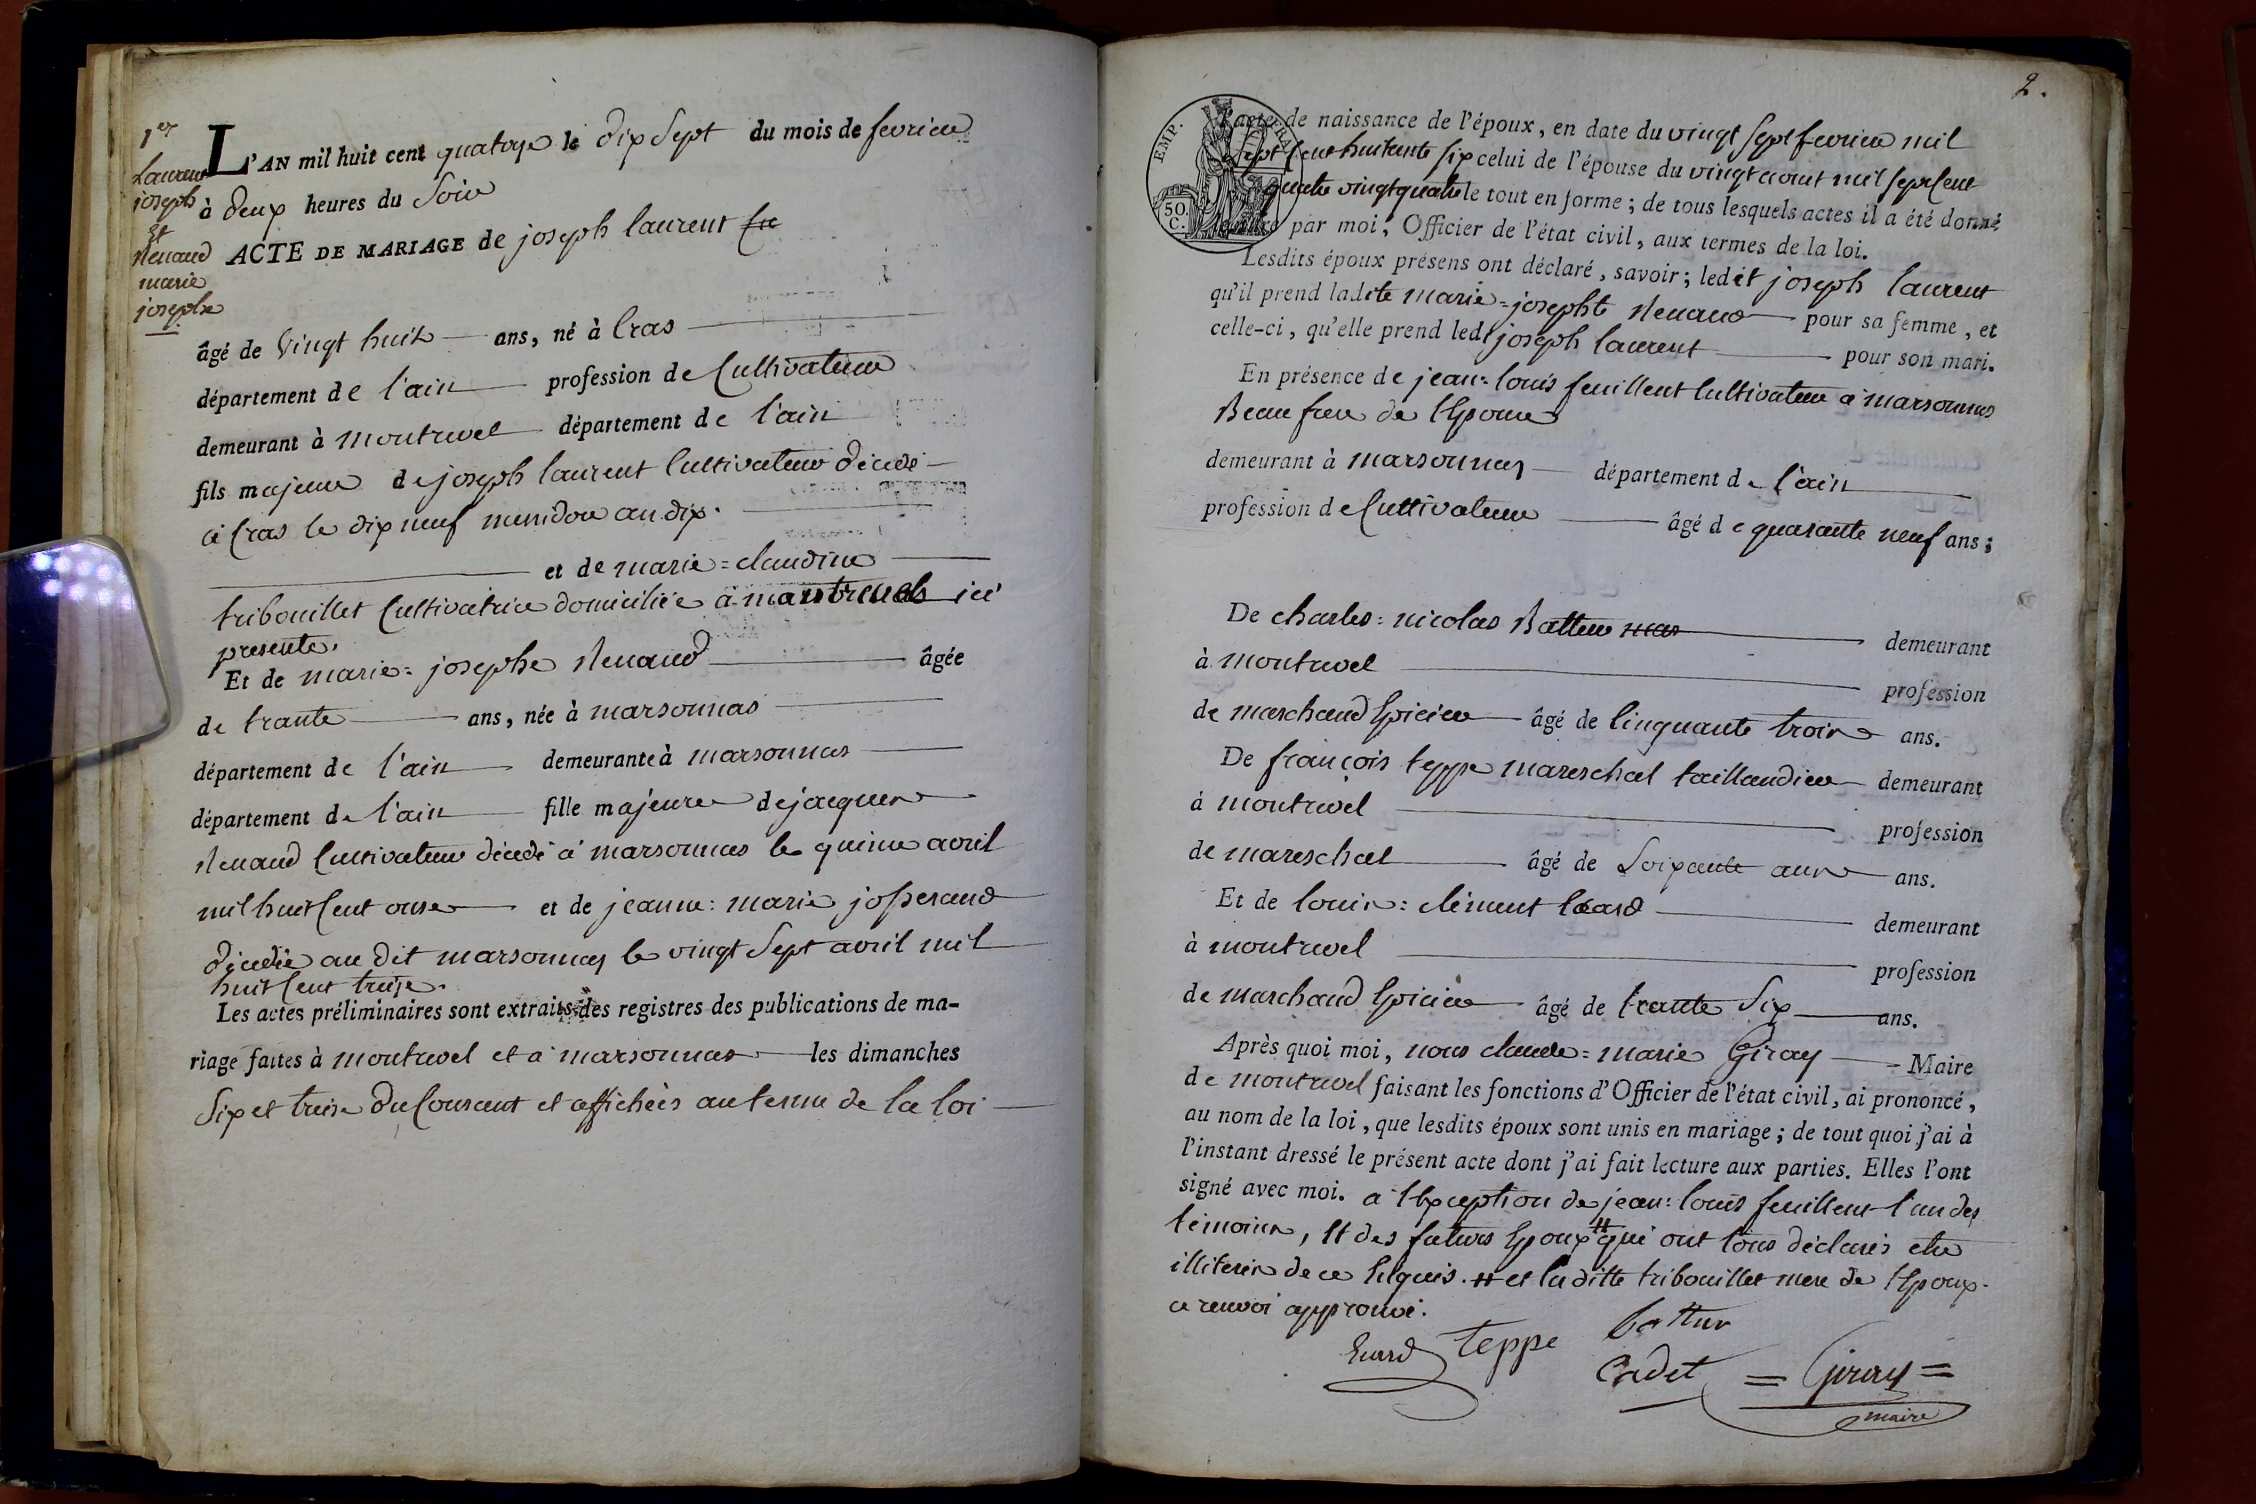 1er
Laurent
joseph
Et
Renaud
marie
josephe
L'AN mil huit cent quatorze le dix Sept du mois de fevrier
à deux heures du Soir
ACTE DE MARIAGE de joseph laurent
âgé de Vingt huit ans, né à Cras
département de l'ain profession de Cultivateur
demeurant à montrevel département de l'ain
fils majeur de joseph laurent Cultivateur décedé
à Cras le dix neuf messidor an dix.
et de marie=claudine
tribouillet Cultivatrice domiciliée à montrevel ici
presente.
Et de marie=josephe Renaud âgée
de trante ans, née à marsonnas
département de l'ain demeurante à marsonnas
département de l'ain fille majeure de jacques
Renaud Cultivateur décedé à marsonnas le quinze avril
mil huit Cent onze et de jeanne=marie josserand
décedée au dit marsonnas le vingt Sept avril mil
huit Cent treize.
Les actes préliminaires sont extraits des registres des publications de ma-
riage faites à montrevel et à marsonnas les dimanches
Six et treize du Courant et affichées au terme de la loi
2.
EMP. FRA
50.
C.
l'acte de naissance de l'époux, en date du vingt Sept fevrier mil
Sept Cent huitante Six celui de l'épouse du vingt aout mil Sept Cent
quatre vingt quatre le tout en forme ; de tous lesquels actes il a été donné
lecture par moi, Officier de l'état civil, aux termes de la loi.
Lesdits époux présens ont déclaré, savoir ; ledit joseph laurent
qu'il prend ladite marie=josephte Renaud pour sa femme, et
celle-ci, qu'elle prend ledt joseph laurent pour son mari.
En présence de jean=louis feuillent Cultivateur à marsonnas
Beau frere de l'Epouse
demeurant à marsonnas département de l'ain
profession de Cultivateur âgé de quarante neuf ans ;
De charles=nicolas Batteur mar demeurant
à montrevel profession
de marchand Epicier âgé de Cinquante trois ans.
De françois teppe mareschal taillandier demeurant
à montrevel profession
de mareschal âgé de Soixante ans ans.
Et de louis=clément demeurant
à montrevel profession
de marchand Epicier âgé de trante Six ans.
Après quoi moi, nous claude=marie Giray Maire
de montrevel faisant les fonctions d'Officier de l'état civil, ai prononcé,
au nom de la loi, que lesdits époux sont unis en mariage ; de tout quoi j'ai à
l'instant dressé le présent acte dont j'ai fait lecture aux parties. Elles l'ont
signé avec moi. à l'Exception de jean=louis feuillent l'un des
témoins, Et des futurs Epoux # qui ont tous déclarés etre
illiterés de ce Enquis. # et la ditte tribouillet mere de l'Epoux.
ce renvoi approuvé.
teppe
Cadet
= Giray =
maire